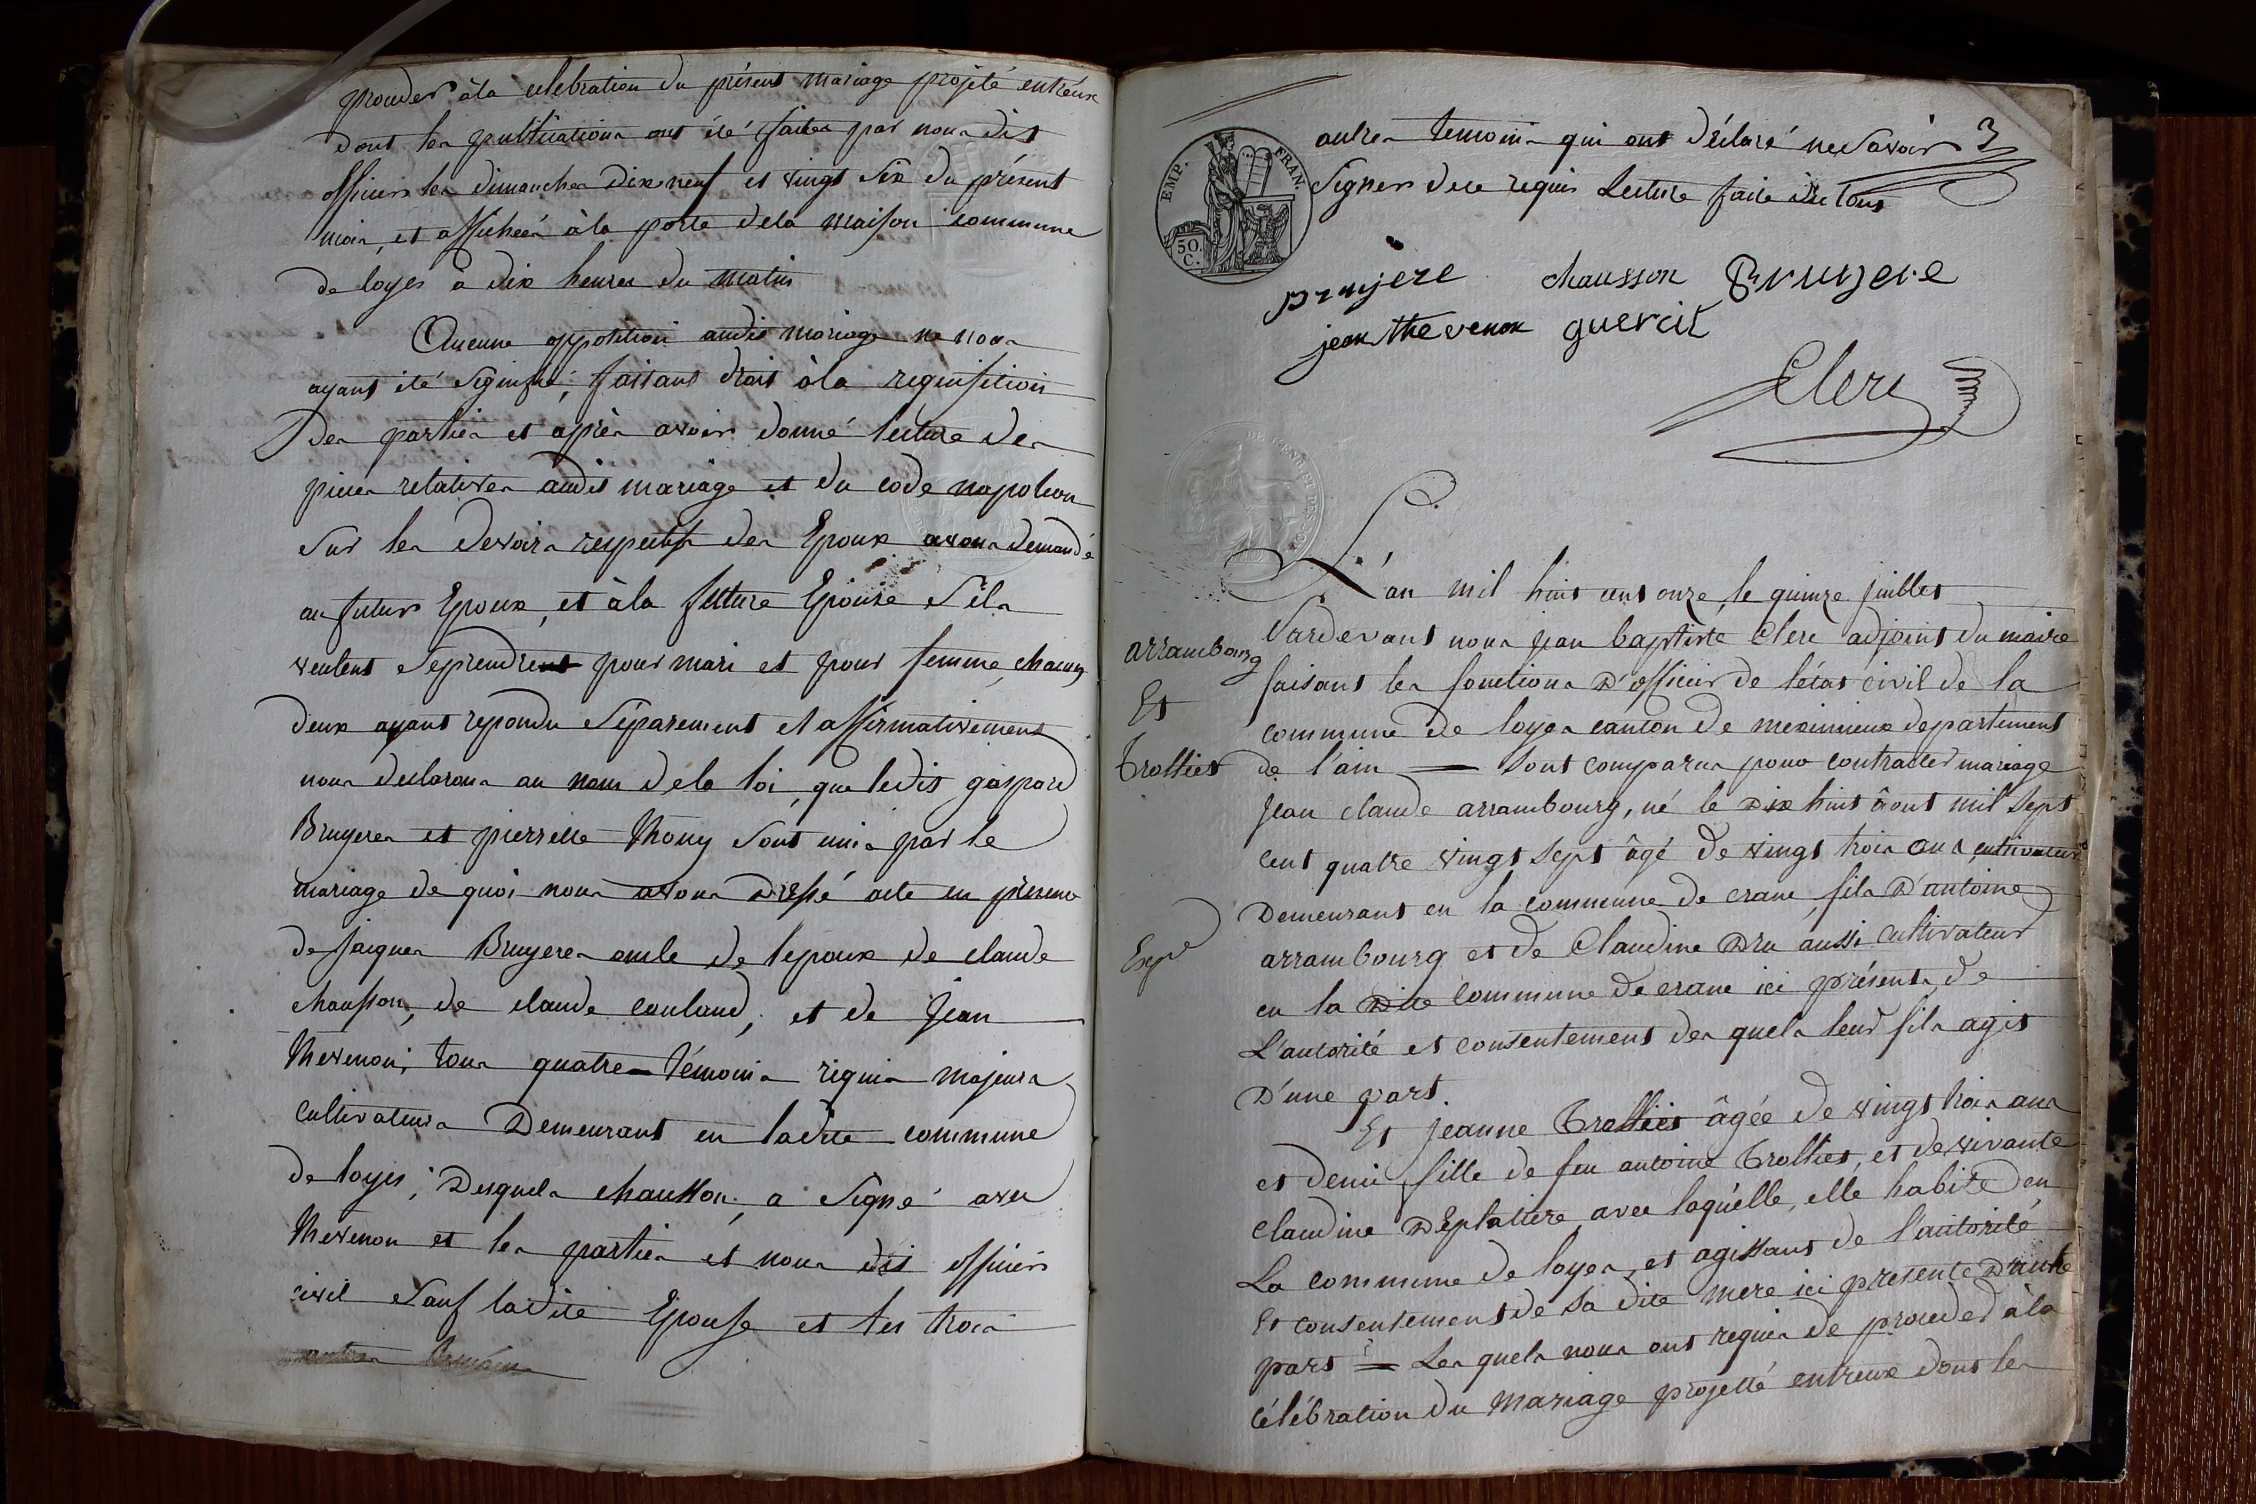 proceder à la celebration du présent mariage projeté entreux
dont les publications ont été faites par nous dit
officier les dimanches dix neuf et vingt six du présent
mois, et affichées à la porte de la maison commune
de loyes à dix heures du matin
Aucune opposition audit mariage ne nous
ayant été signifié, faisant droit à la requisition
des parties et après avoir donné lecture des
pieces relatives audit mariage et du code napoleon
sur les devoirs respectifs des Epoux avons demandé
au futur Epoux, et à la future Epouse s'ils
veulent se prendrent pour mari et pour femme, chacun
deux ayant repondu séparement et affirmativement
nous declarons au nom de la loi, que ledit gaspard
Bruyeres et pierrette Thony sont unis par le
mariage de quoi nous avons dressé acte en presence
de jacques Bruyeres oncle de lepoux de claude
chausson, de claude couland, et de jean
thevenon, tous quatre témoins requis majeurs
cultivateurs Demeurant en ladite commune
de loyes, Desquels chausson, a signé avec
thevenon et les parties et nous dit officier
civil sauf ladite Epouse et les trois
autres témoins
3
EMP. FRAN.
50. C.
autres temoins qui ont déclaré ne savoir
signer de ce requis Lecture faite de tout
bruyere chausson Bruyere
jean thevenon guercit
Clerc
L'an mil huit cent onze, le quinze juillet
Pardevant nous jean baptiste Clerc adjoint du maire
arrambourg
Et
trollier
faisant les fonctions D'officier de l'état civil de la
commune de loyes canton de meximieux departement
de l'ain — sont comparus pour contracter mariage
jean claude arrambourg, né le dix huit âout mil sept
cent quatre vingt sept âgé de vingt trois ans cultivateur
Demeurant en la commune de crane, fils D'antoine
Expé
arrambourg et de Claudine Dru aussi cultivateur
en la Dite commune de crane ici présents, de
L'autorité et consentement des quels leur fils agit
D'une part
Et jeanne trollier âgée de vingt trois ans
et demi, fille de feu antoine trollier, et de vivante
claudine Deplatiere avec laquélle, elle habite en
La commune de loyes, et agissant de l'autorité
Et consentement de sa dite mere ici presente D'autre
part = Les quels nous ont requis de proceder à la
célébration du mariage projetté entreux dont les